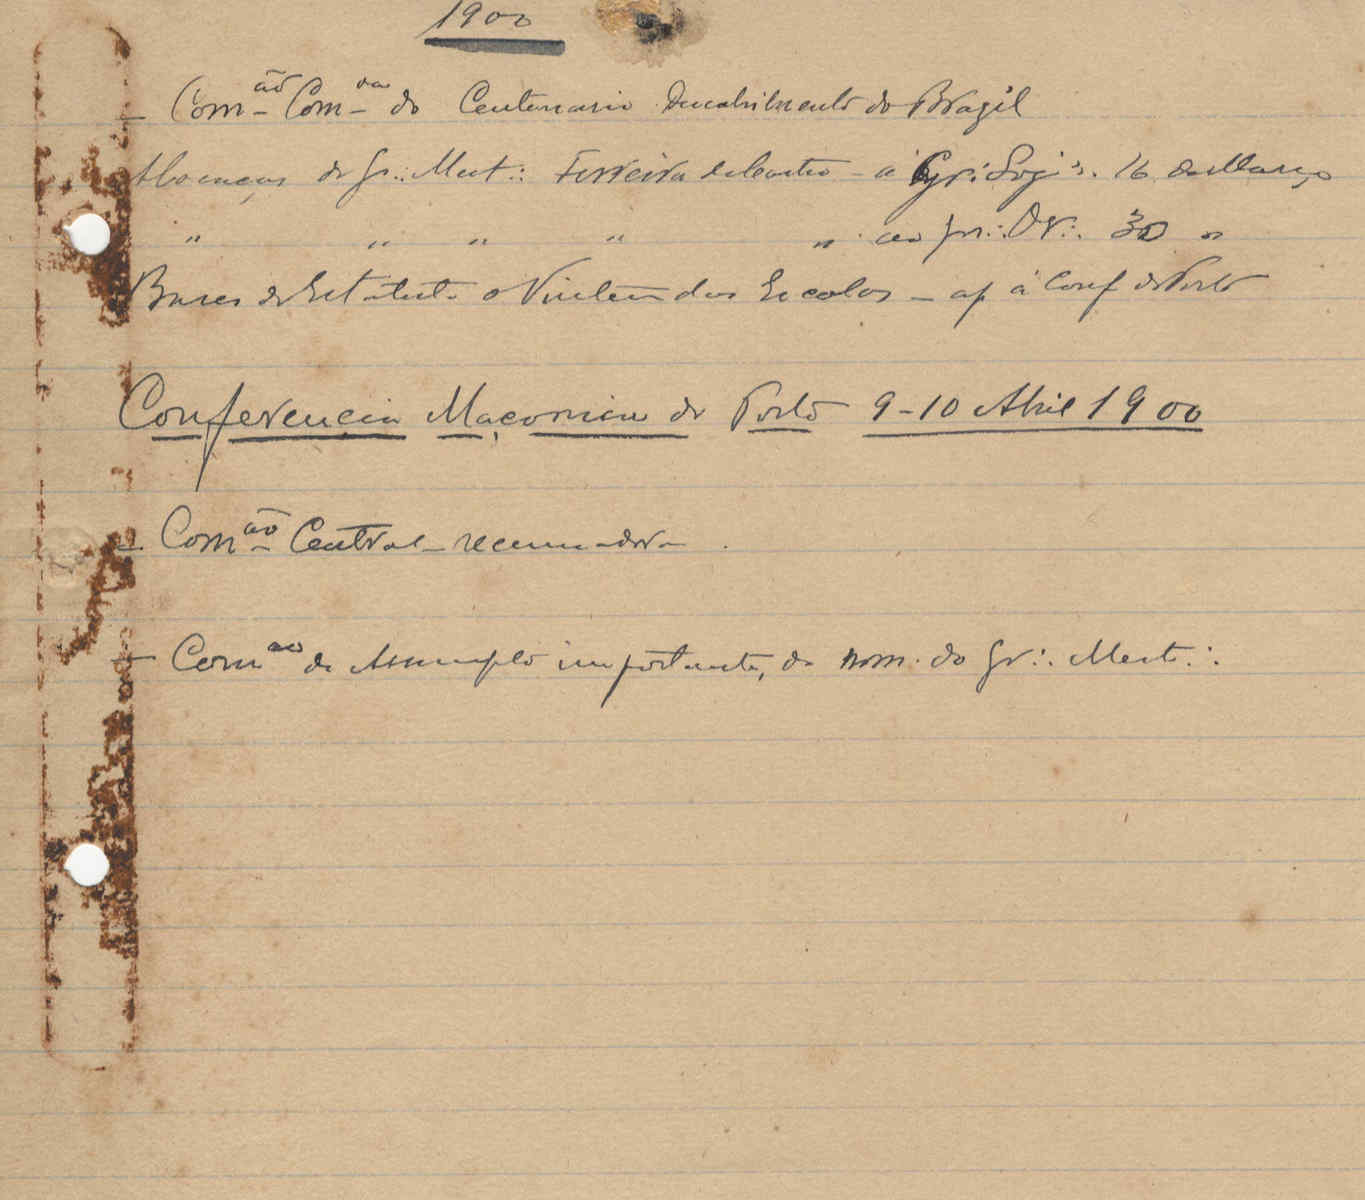 1900
— Com.ão Com.va do Centenario Descobrimento do Brazil
Allocuçao do Gr∴ Mest∴ Ferreira de Castro — á Gr∴ Loj∴ 16 de Março
" " " " " ao gr∴ Or∴ 30 "
Bases do Estatuto o Vintem das Escolas — ap á Conf do Porto
Conferencia Maçonica do Porto 9-10 Abril 1900
— Com.ão Central
— Com.ão de Assumpto importante, de nom. do Gr∴ Mest∴